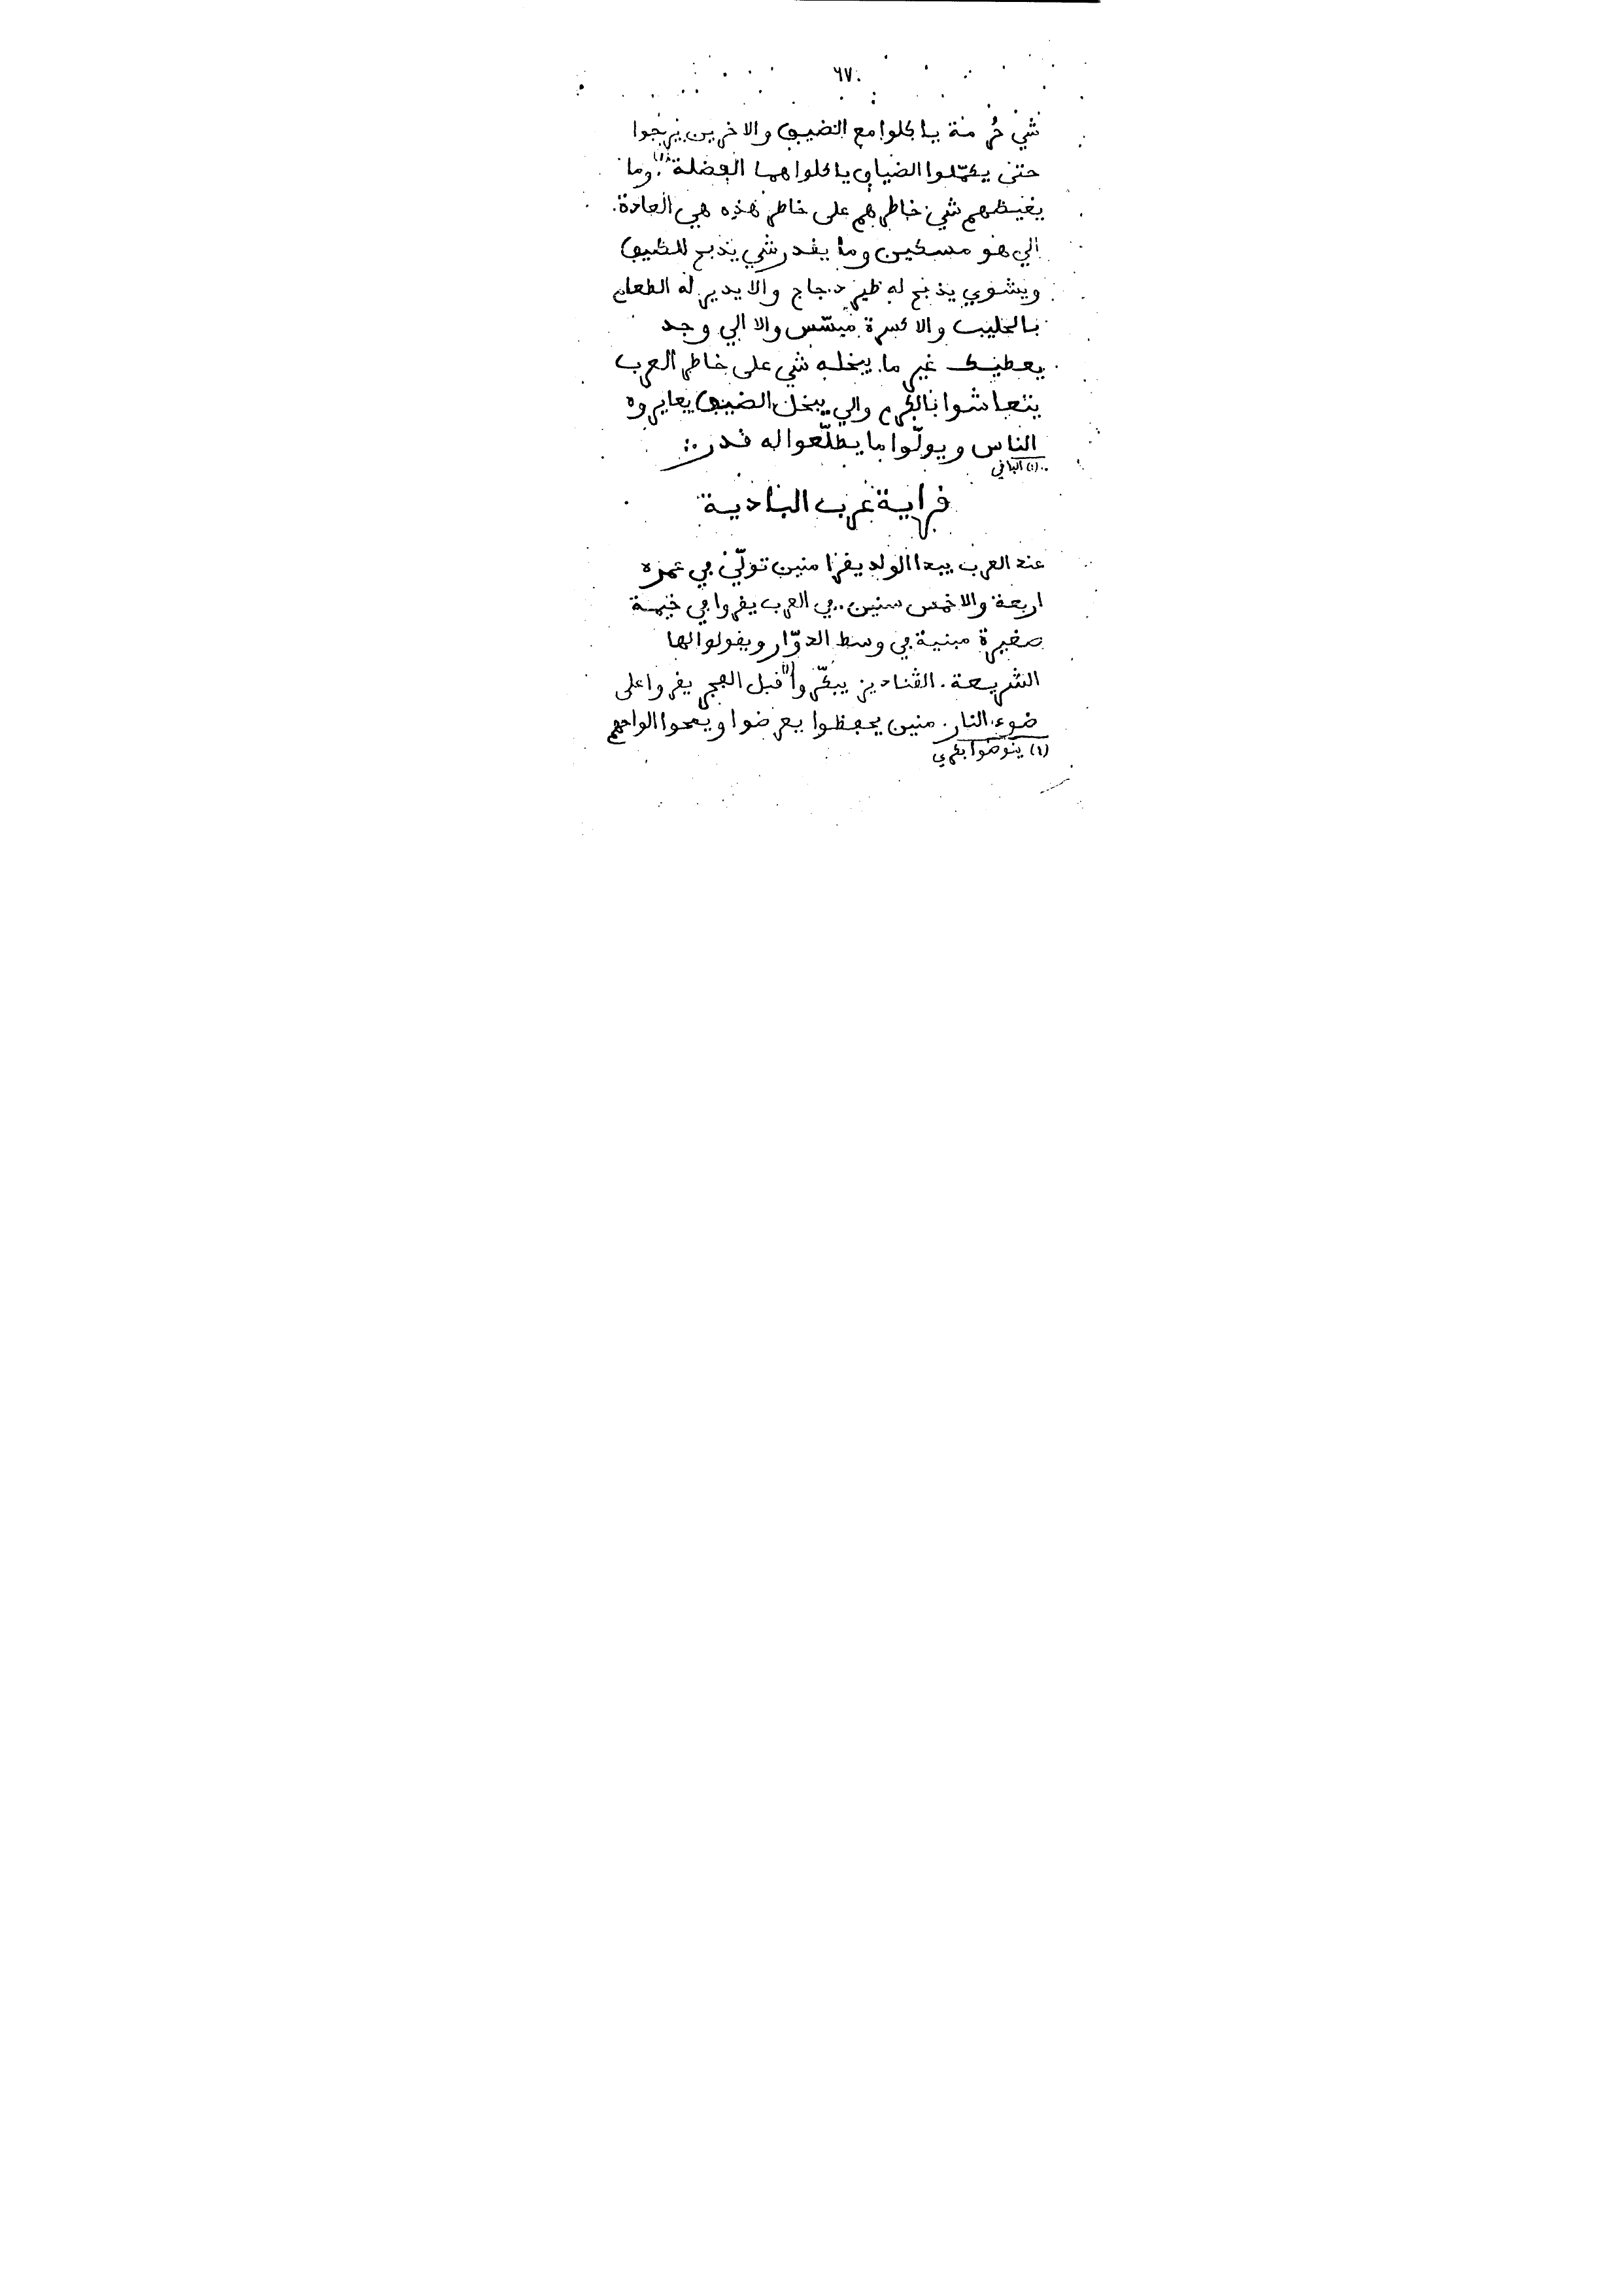 ٦٧
شي حُرمة ياكلوا مع الضيف والاخرين يرجوا
حتى يكمّلوا الضياف ياكلوا هما الفضلة(١). وما
يغيظهم شي خاطرهم على خاطر هذه هي العادة.
الي هو مسكين وما يقدر شي يذبح للضيف
ويشوي يذبح له طير دجاج والا يدير له الطعام
بالحليب والا كسرة والا الي وجد
يعطيك غير ما يبخله شي على خاطر العرب
يتعاشوا بالكرم والي يبخل الضيف يعايروه
الناس ويولّوا ما يطلّعوا له قدر
(١) الباقي
قراية عرب البادية
عند العرب يبدا الولد يقرا منين تولّي في عمره
اربعة والا خمس سنين. في العرب يقروا في خيمة
صغيرة مبنية في وسط الدوّار ويقولوا لها
الشريعة. القناديز يبكّروا(١) قبل الفجر يقروا على
ضوء النار. منين يحفظوا يعرضوا ويمحوا الواحهم
(١) ينوضوا بكري